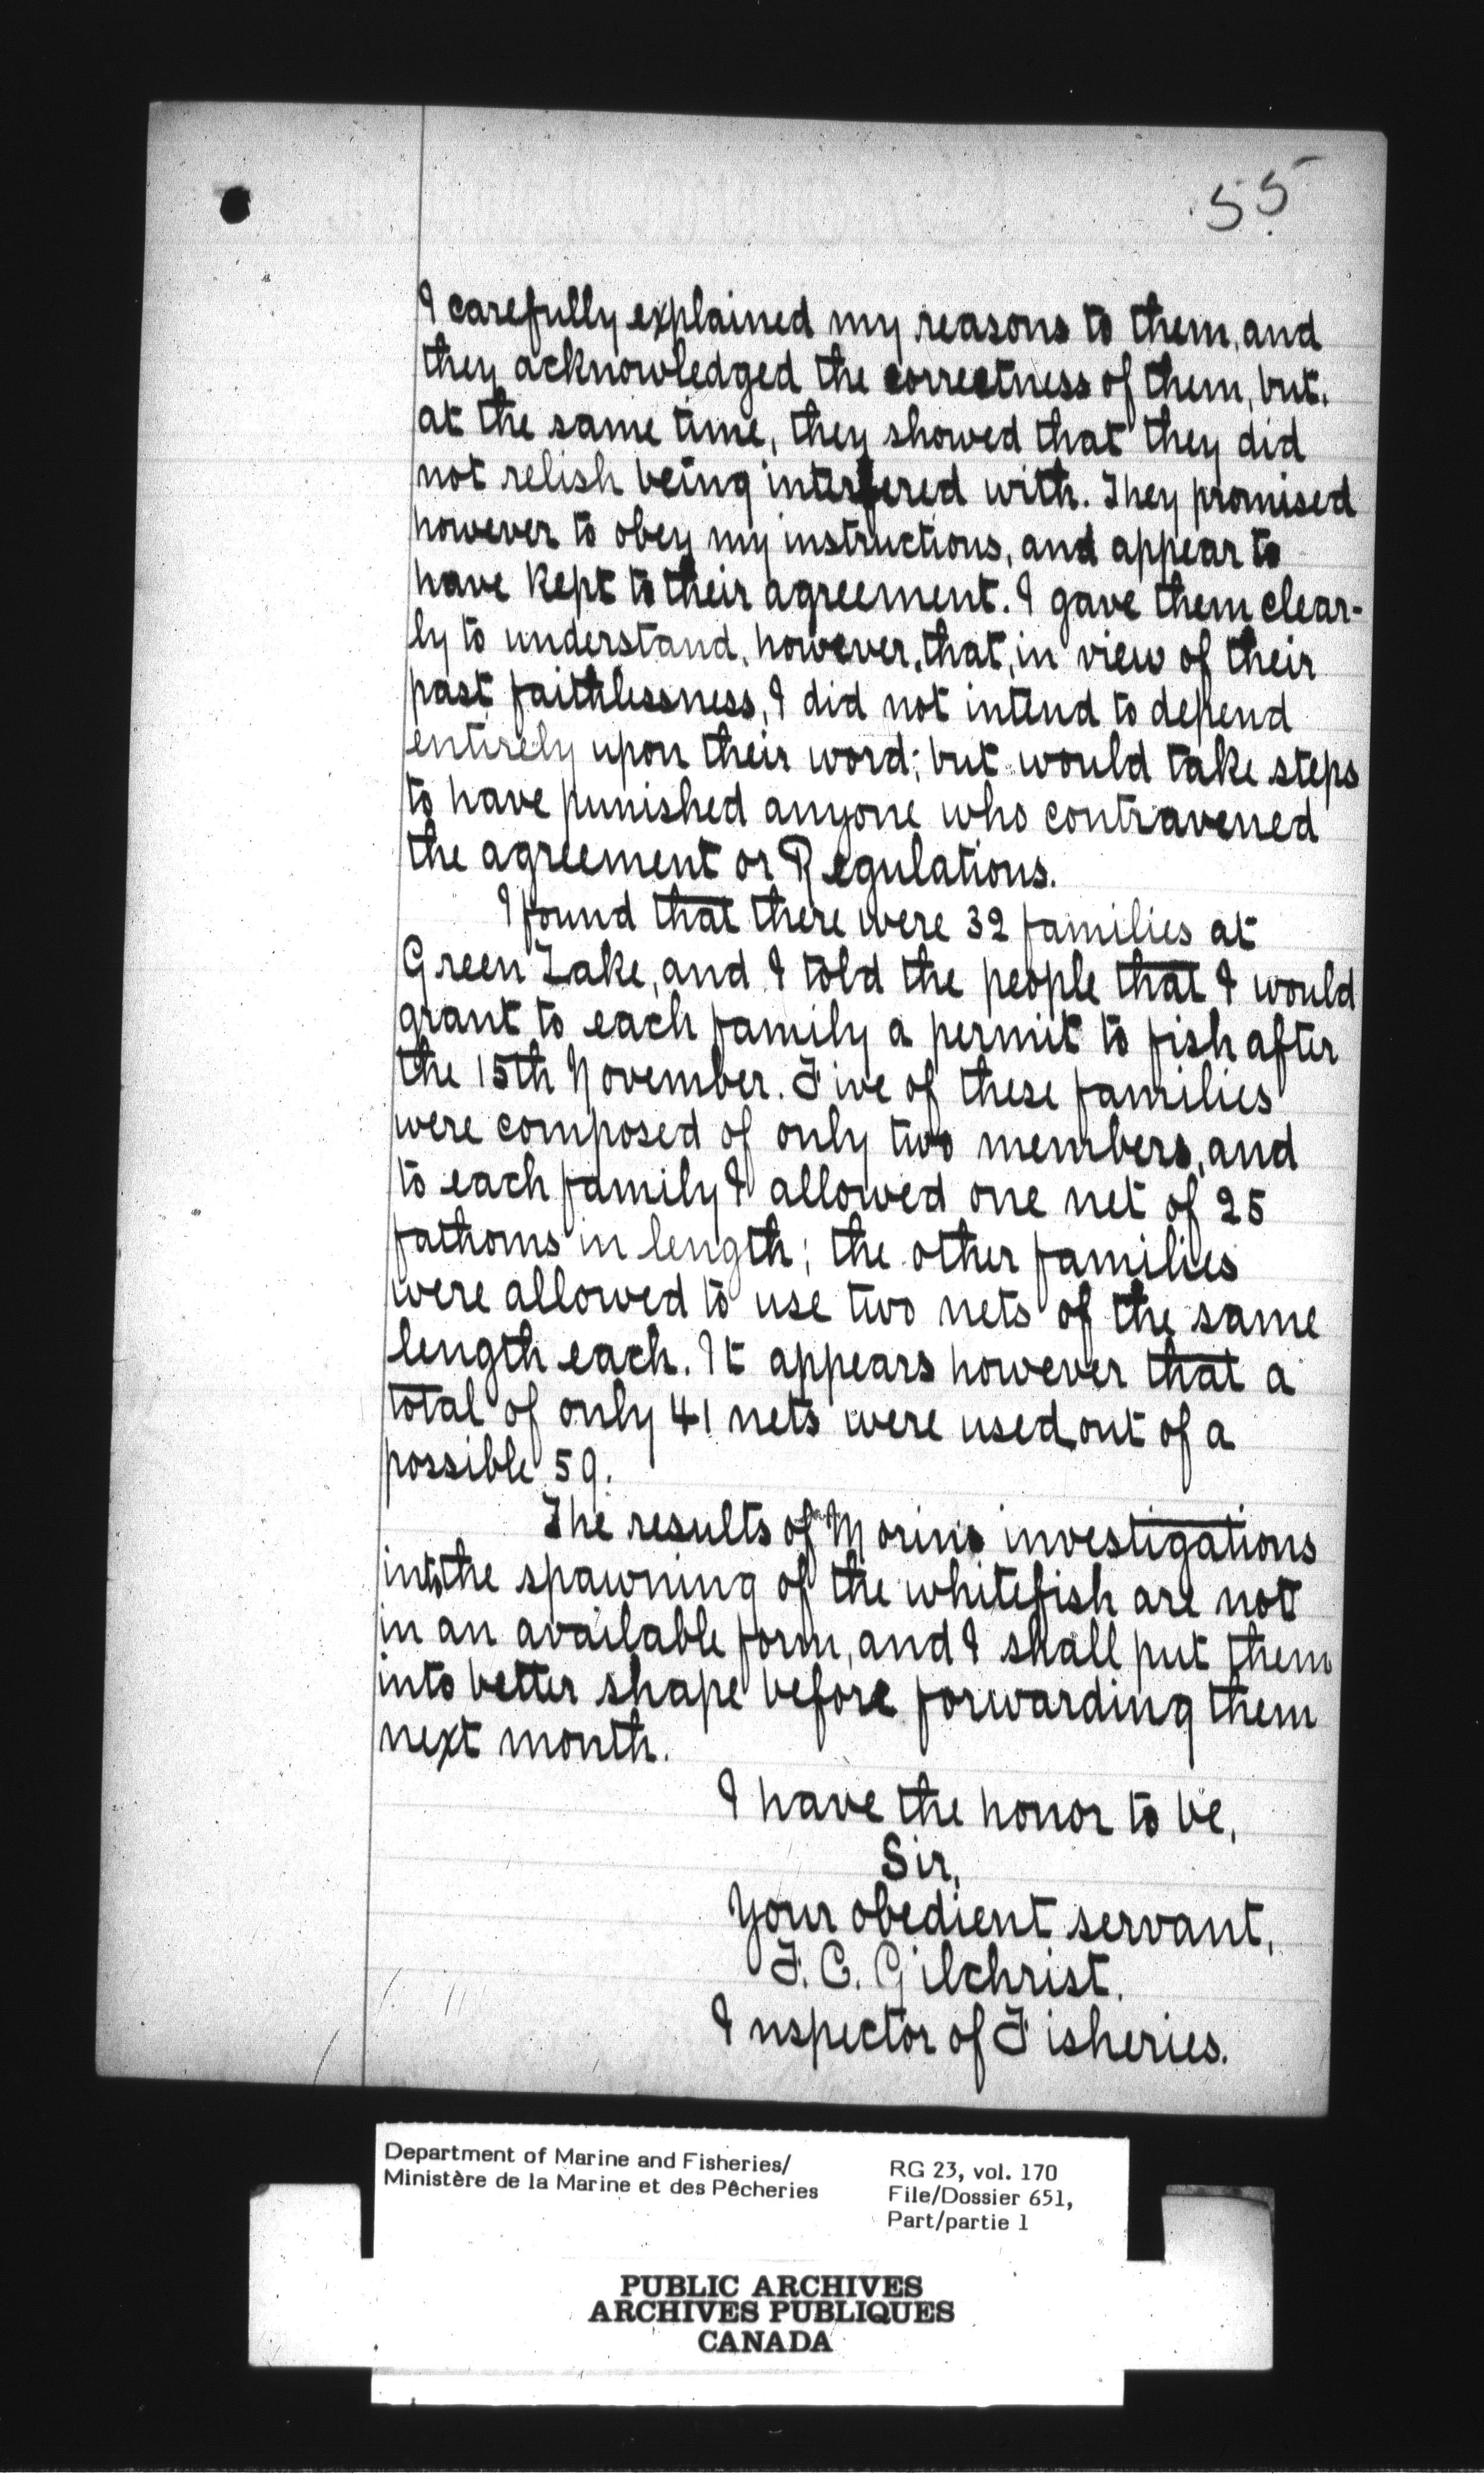 55
I carefully explained my reasons to them, and
they acknowledged the correctness of them, but,
at the same time, they showed that they did
not relish being interfered with. They promised
however to obey my instructions, and appear to
have kept to their agreement. I gave them clear-
ly to understand, however, that, in view of their
past faithlessness, I did not intend to depend
entirely upon their word; but would take steps
to have punished anyone who contravened
the agreement or Regulations.
I found that there were 32 families at
Green Lake, and I told the people that I would
grant to each family a permit to fish after
the 15th November. Five of these families
were composed of only two members, and
to each family I allowed one net of 25
fathoms in length; the other families
were allowed to use two nets of the same
length each. It appears however that a
total of only 41 nets were used out of a
possible 59.
The results of Morins investigations
into the spawning of the whitefish are not
in an available form, and I shall put them
into better shape before forwarding them
next month.
I have the honor to be,
Sir,
Your obedient servant,
F. C. Gilchrist.
Inspector of Fisheries.
Department of Marine and Fisheries/
Ministère de la Marine et des Pêcheries
RG 23, vol. 170
File/Dossier 651,
Part/partie 1
PUBLIC ARCHIVES
ARCHIVES PUBLIQUES
CANADA